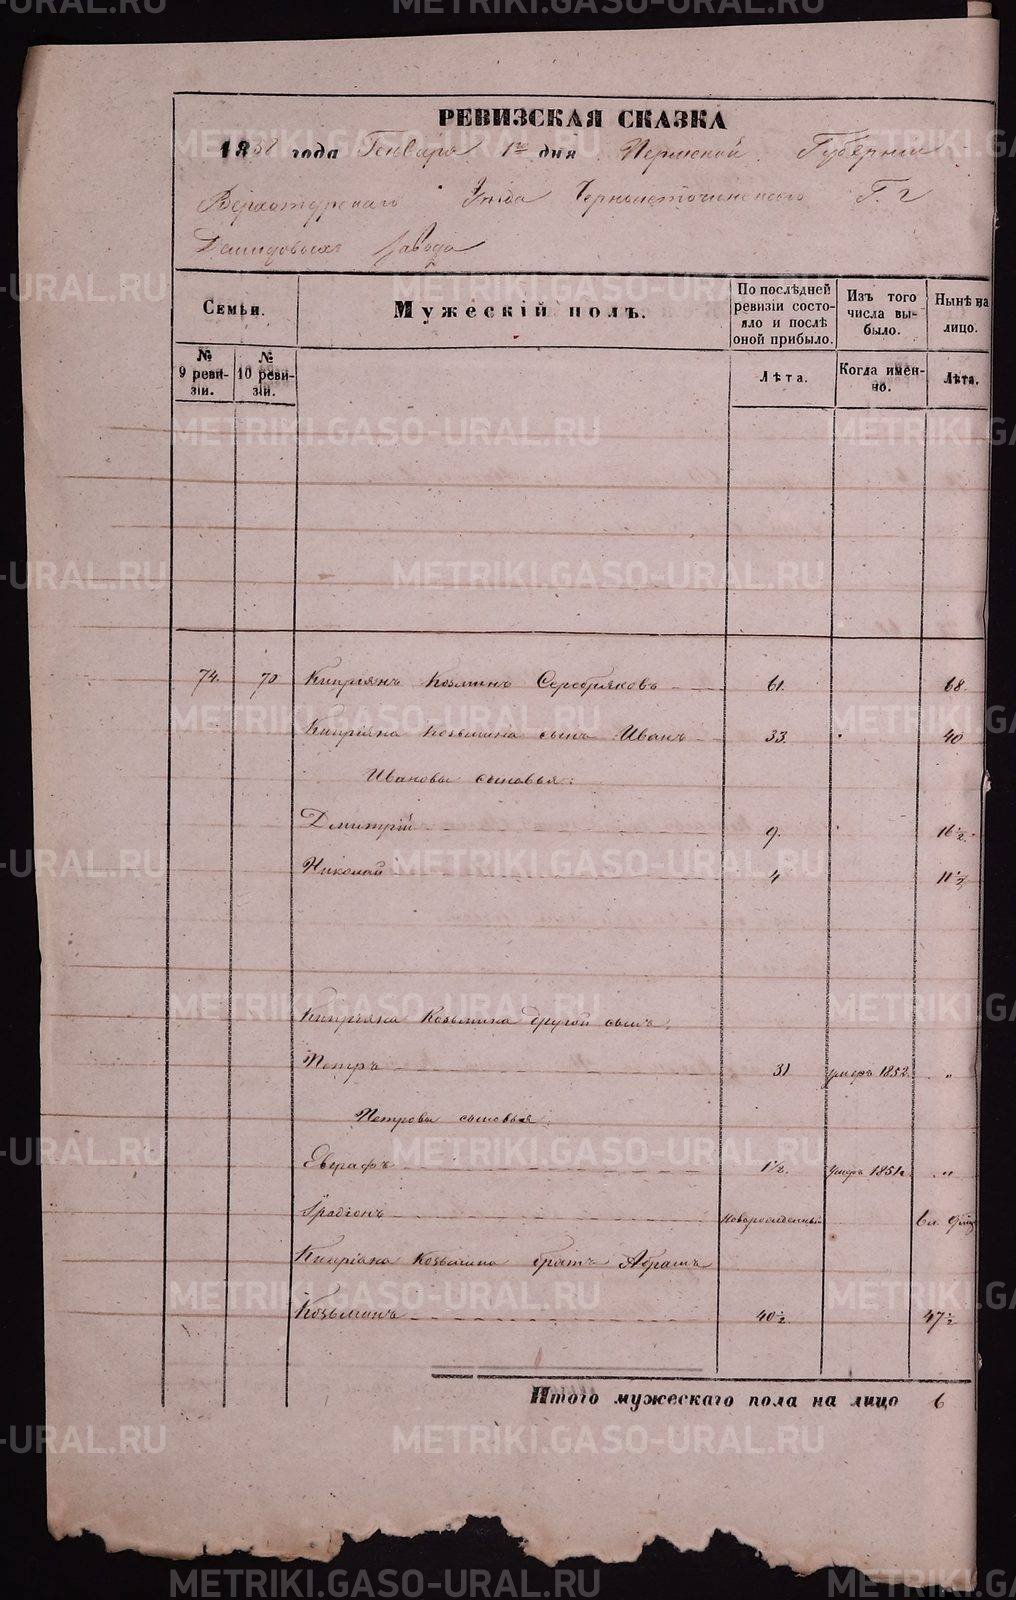 РЕВИЗСКАЯ СКАЗКА
1858 года Генваря 1го дня Пермской Губернiи
Верхотурскаго Уезда Черноисточинскаго Г. г
Демидовыхъ завода
Семьи.
№ 9 ревизiи.
№ 10 ревизiи.
Мужескiй полъ.
По послѣдней ревизiи состояло и послѣ оной прибыло.
Лѣта.
Изъ того числа выбыло.
Когда именно.
Нынѣ на лицо.
Лѣта.
74. 70 Кипрiянъ Козьминъ Серебряковъ 61. 68.
Кипрiяна Козьмина сынъ Иванъ 33. 40
Ивановы сыновья:
Дмитрiй 9. 16 1/2
Николай 4 11 1/2
Кипрiяна Козьмина другой сынъ
Петръ 31 умеръ 1852. "
Петровы сыновья:
Евграфъ 1 1/2. умеръ 1851г. "
новорожденный
Кипрiяна Козьмина братъ Абрамъ
Козьминъ 40 1/2 47 1/2
Итого мужескаго пола на лицо 6
METRIKI.GASO-URAL.RU